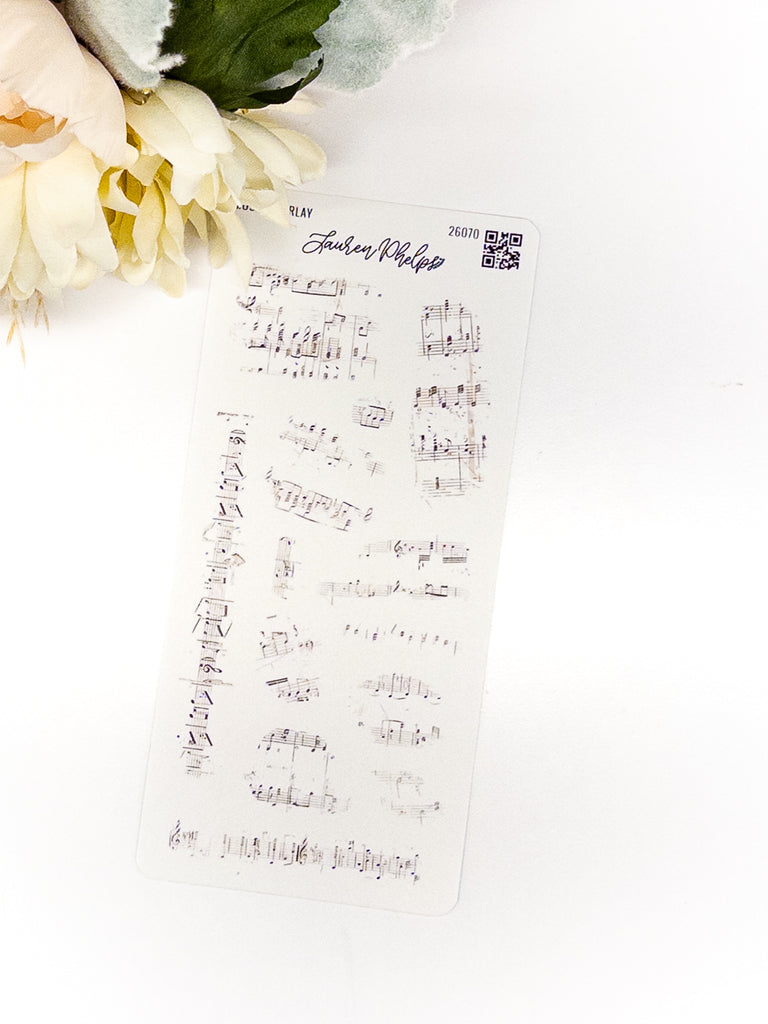 RLAY
Lauren Phelps
26070